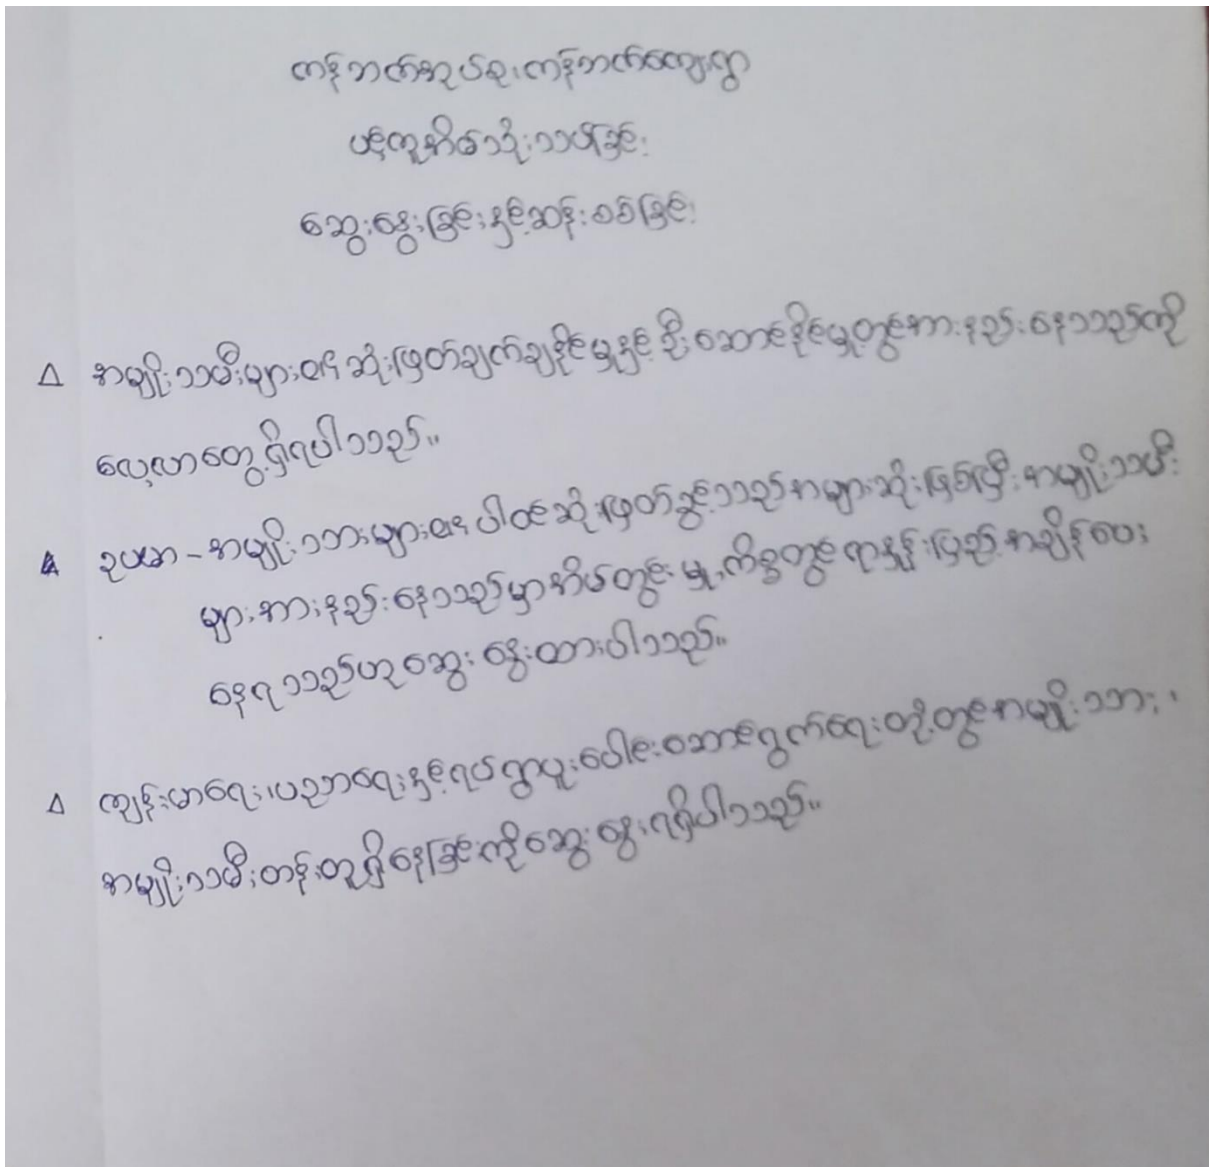 ကန်ဘက်အုပ်စု၊ ကန်ဘက်ကျေးရွာ
ပင့်ကူအိမ်သုံးသပ်ခြင်း
ဆွေးနွေးခြင်းနှင့်ဆန်းစစ်ခြင်း
△ အမျိုးသမီးများ၏ ဆုံးဖြတ်ချက်ချနိုင်မှုနှင့် ဦးဆောင်နိုင်မှုတွင်အားနည်းနေသည်ကို
လေ့လာတွေ့ရှိရပါသည်။
△ ဥပမာ - အမျိုးသားများ၏ ပါဝင်ဆုံးဖြတ်ခွင့်သည်အများဆုံးဖြစ်ပြီး အမျိုးသမီး
များအားနည်းနေသည်မှာအိမ်တွင်းမှုကိစ္စတွင် ရာနှုန်းပြည့်အချိန်ပေး
နေရသည်ဟုဆွေးနွေးထားပါသည်။
△ ကျန်းမာရေး၊ ပညာရေးနှင့်ရပ်ရွာပူးပေါင်းဆောင်ရွက်ရေးတို့တွင်အမျိုးသား၊
အမျိုးသမီးတန်းတူရှိနေခြင်းကိုဆွေးနွေးရရှိပါသည်။